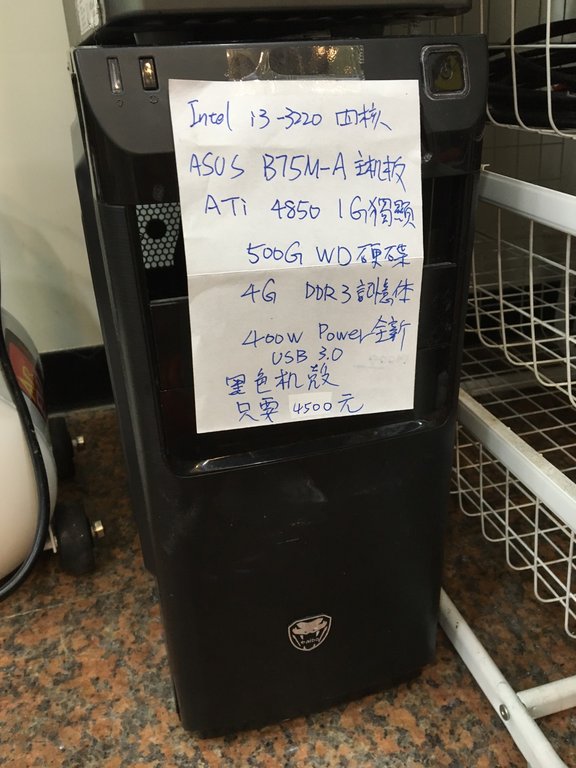 Intel i3-3220 四核
ASUS B75M-A 主机板
ATi 4850 1G獨顯
500G WD硬碟
4G DDR3記憶体
400W Power全新
USB 3.0
黑色机殼
只要 4500元